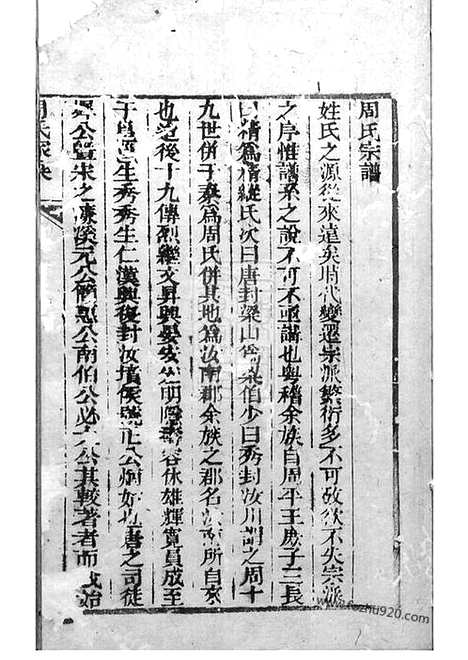 周氏宗譜
姓氏之源從來遠矣時代變遷宗派繁衍多不可攷欲不失宗派
之序惟譜系之說不可不亟講也粵稽余族自周平王庶子三長
曰精為精縱氏次曰唐封梁山為梁伯少曰秀封汝川謂之周十
九世併于秦為周氏併其地為汝南郡余族之郡名汝南所自來
也是後十九傳烈繼文昇興晏安容休雄輝寬員成至
于邕邕生秀秀生仁漢興復封汝墳侯號正公嗣好近唐之司徒
公暨宋之濂溪元公解惠公南伯公必大公其較著者而成始
周氏家
www.fozhu920.com